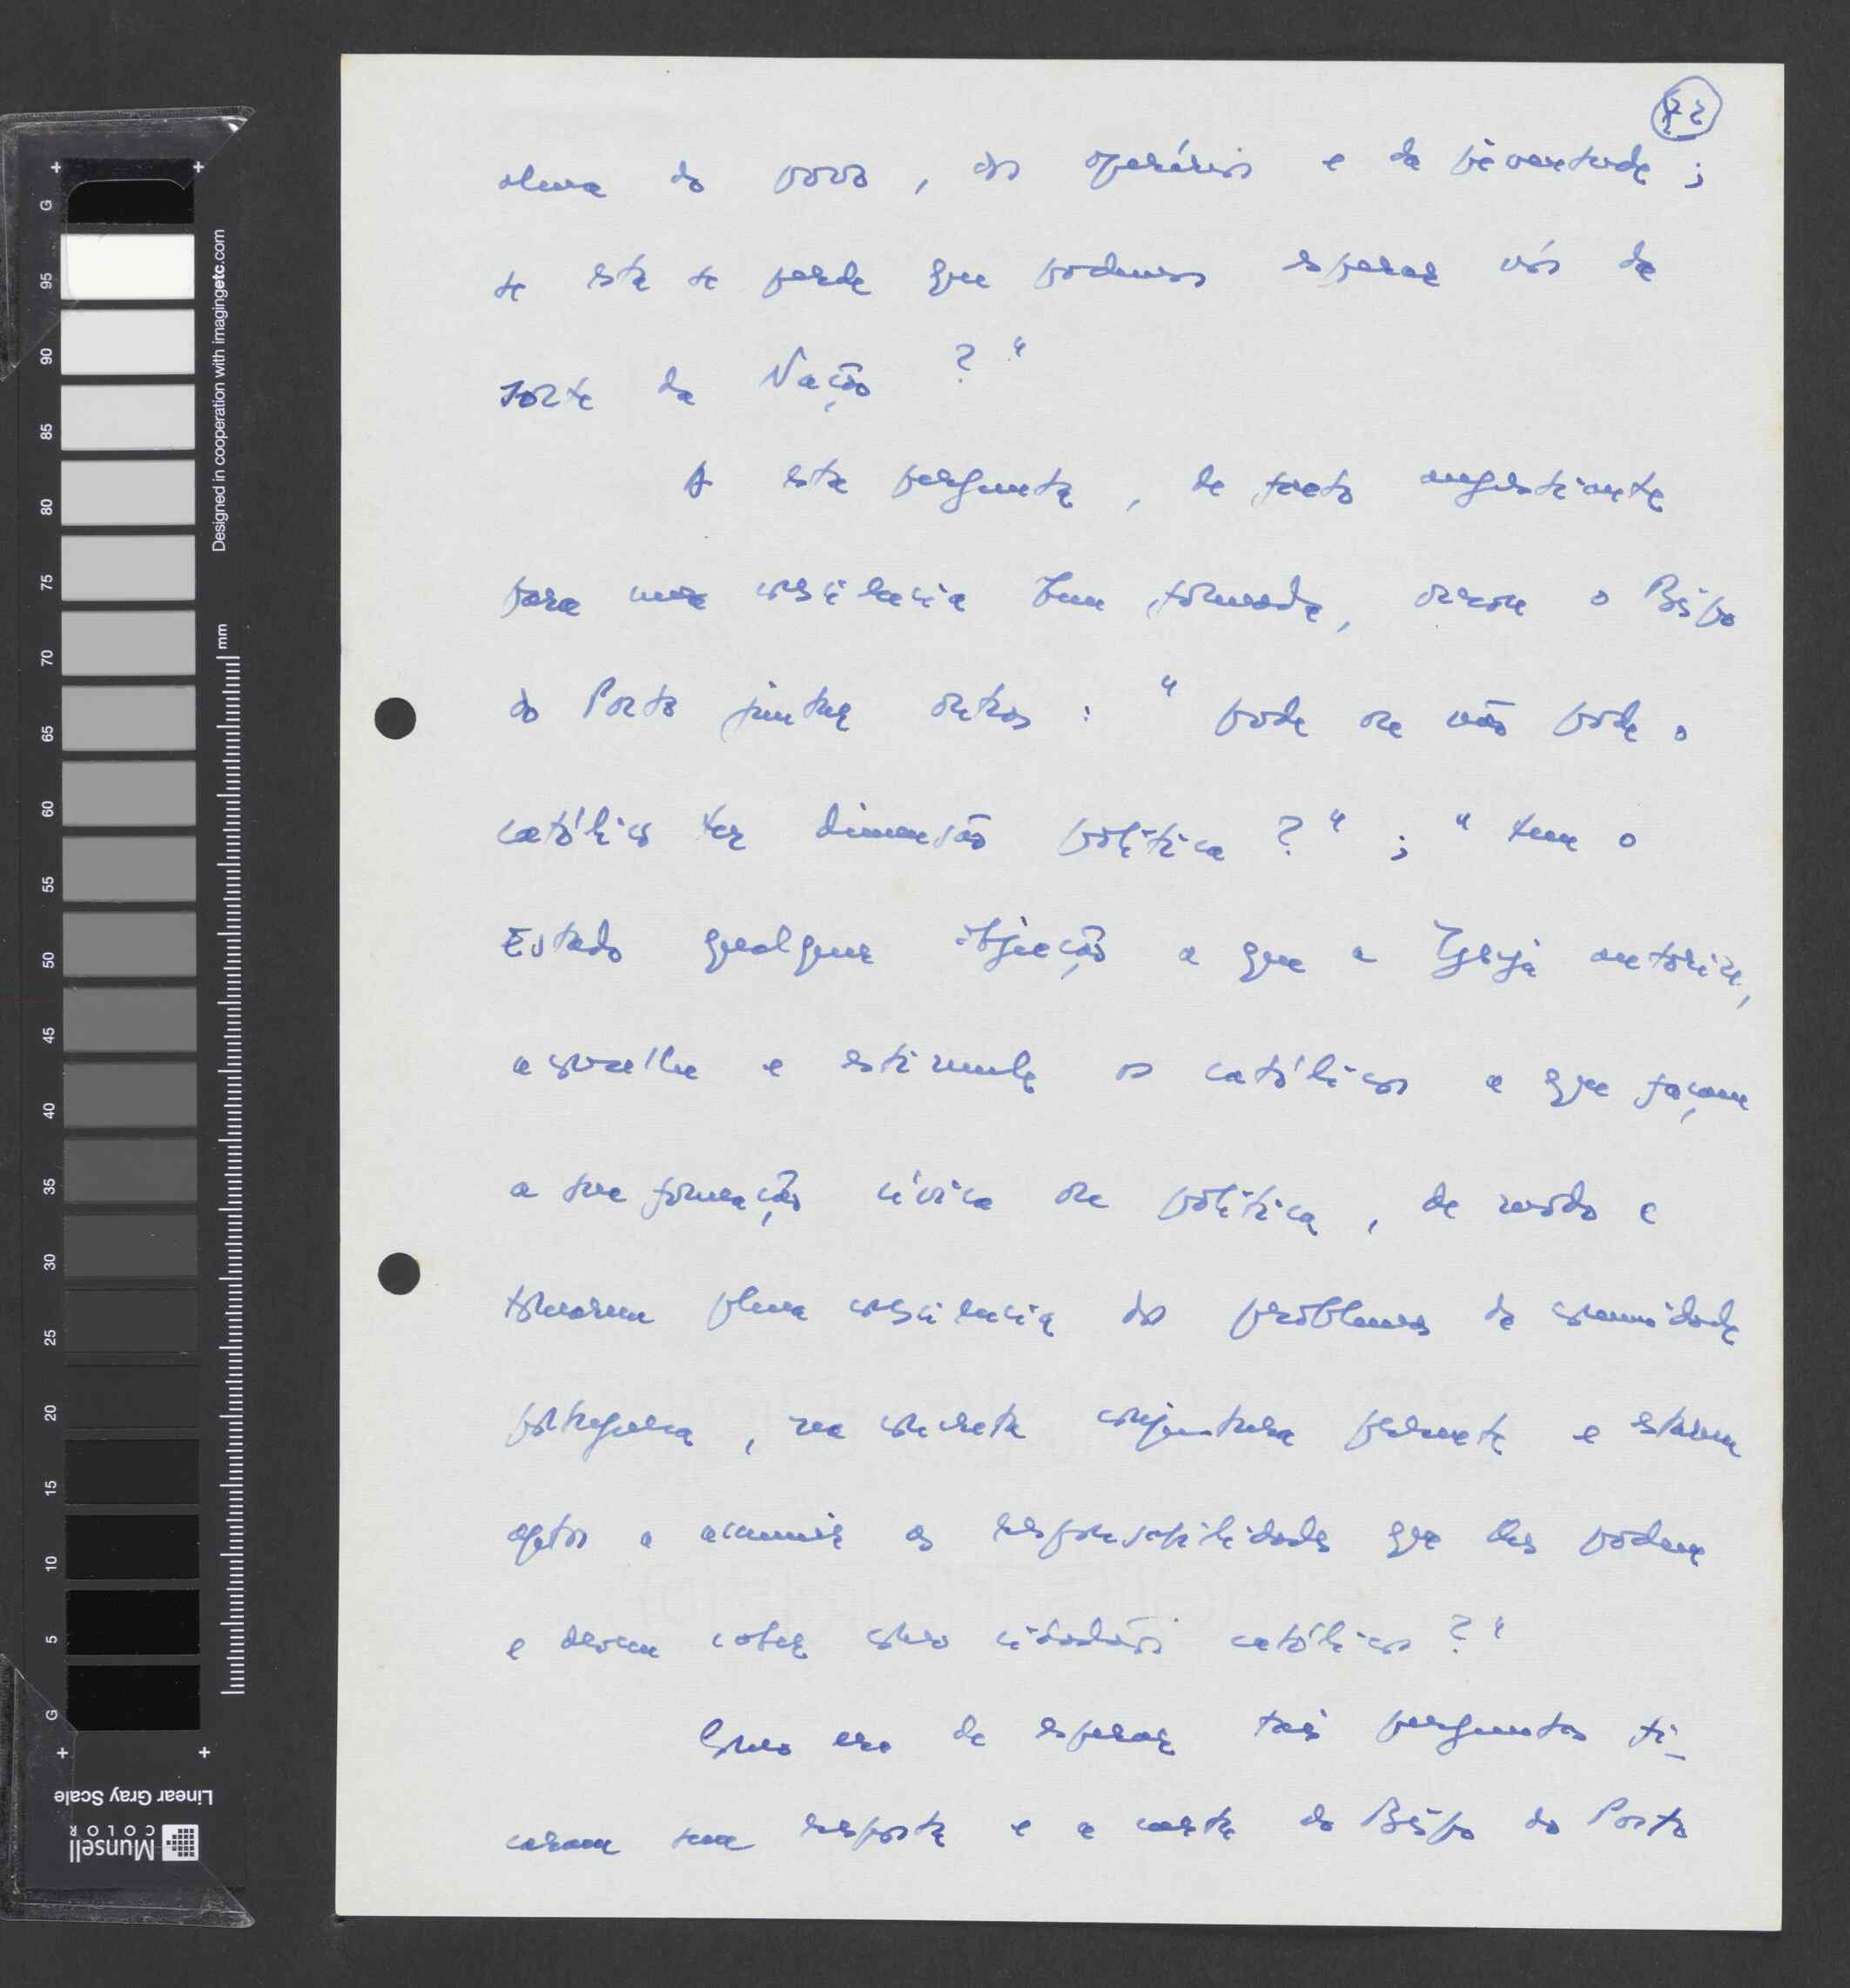 72
alma do povo, dos operários e da juventude;
se esta se perde que podemos esperar nós da
sorte da Nação ?"
A esta pergunta, de facto angustiante
para uma consciência bem formada, o Bispo
do Porto juntar outras: "pode ou não pode o
católico ter dimensão política?"; "tem o
Estado qualquer objecção a que a Igreja autorize,
aconselhe e estimule os católicos a que façam
a sua formação cívica ou política, de modo a
tomarem plena consciência dos problemas da comunidade
portuguesa, na concreta conjuntura presente e estarem
aptos a assumir as responsabilidades que lhes podem
e devem caber como cidadãos católicos ?"
Como era de esperar tais perguntas fi-
caram sem resposta e a carta do Bispo do Porto
G 95 90 85 80 75 70 65 60 55 50 45 40 35 30 25 20 15 10 5 G
Designed in cooperation with imagingetc.com
mm
Linear Gray Scale
Munsell
COLOR